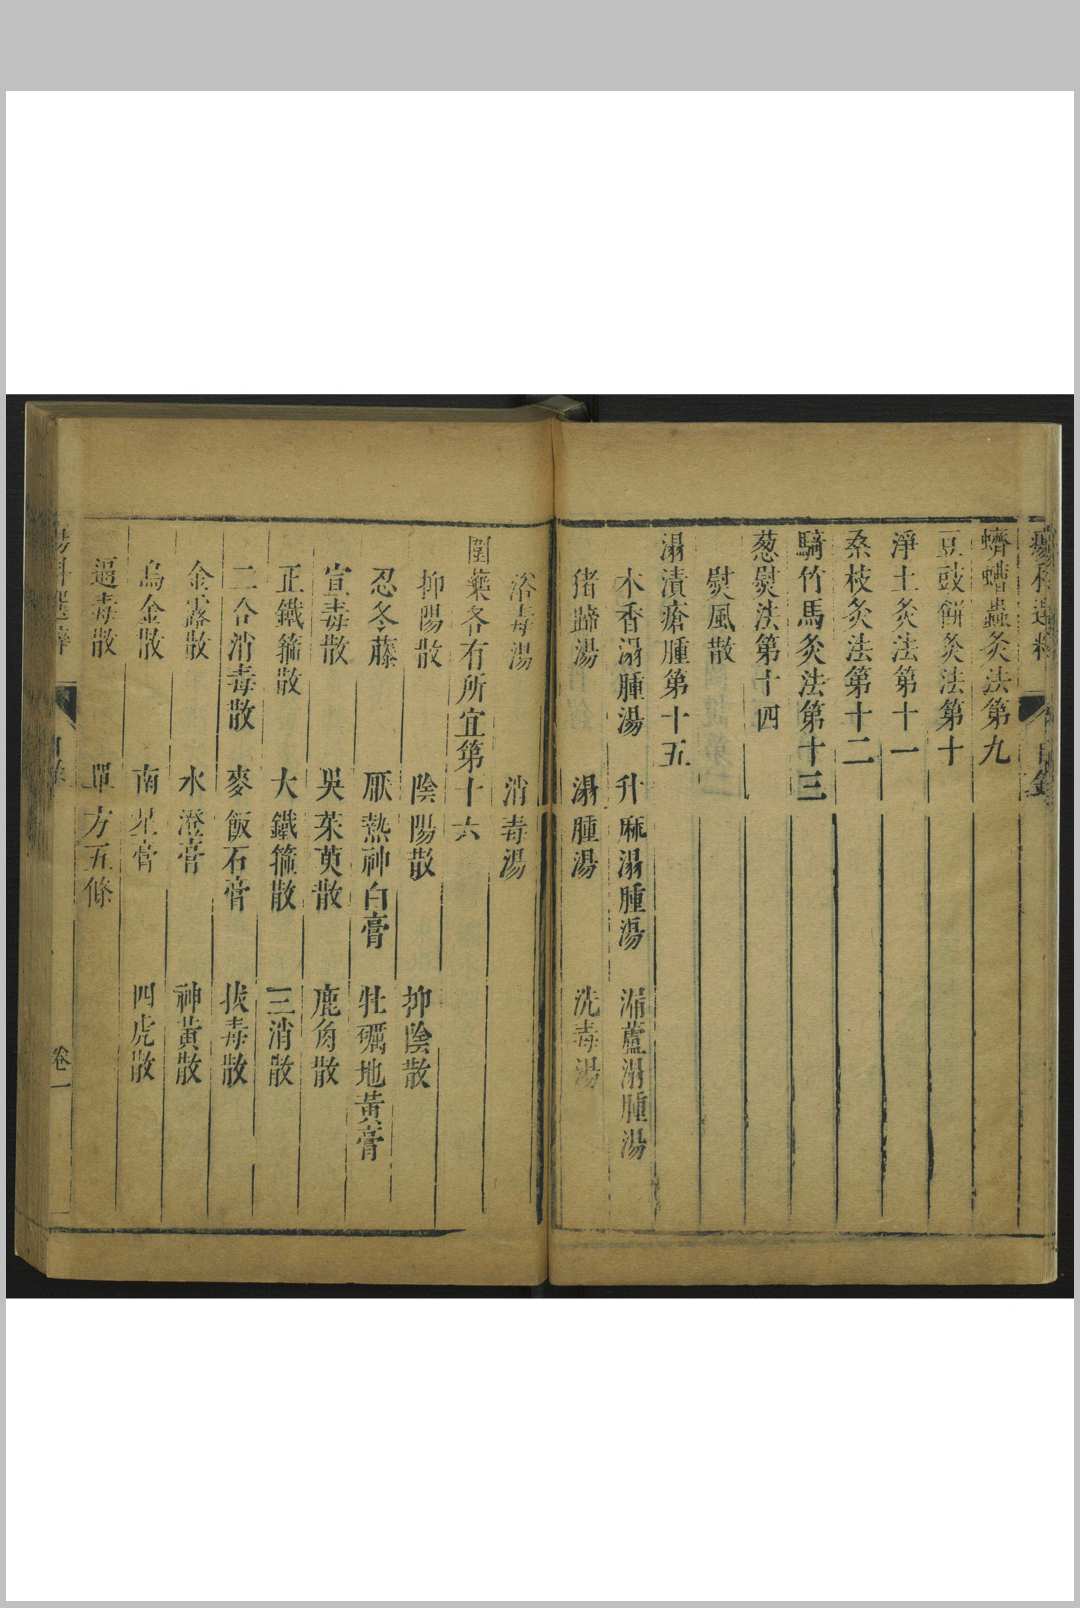 瘍科選粹 目錄
蠐螬蟲灸法第九
豆豉餅灸法第十
淨土灸法第十一
桑枝灸法第十二
騎竹馬灸法第十三
葱熨法第十四
熨風散
溻漬瘡腫第十五
木香溻腫湯 升麻溻腫湯 漏蘆溻腫湯
猪蹄湯 溻腫湯 洗毒湯
浴毒湯 消毒湯
圍藥各有所宜第十六
抑陽散 陰陽散 抑陰散
忍冬藤 厭熱神白膏 牡礪地黃膏
宣毒散 吳茱萸散 鹿角散
正鐵箍散 大鐵箍散 三消散
二合消毒散 麥飯石膏 拔毒散
金露散 水澄膏 神黃散
烏金散 南星膏 四虎散
逼毒散 單方五條
瘍科選粹 目錄 卷一